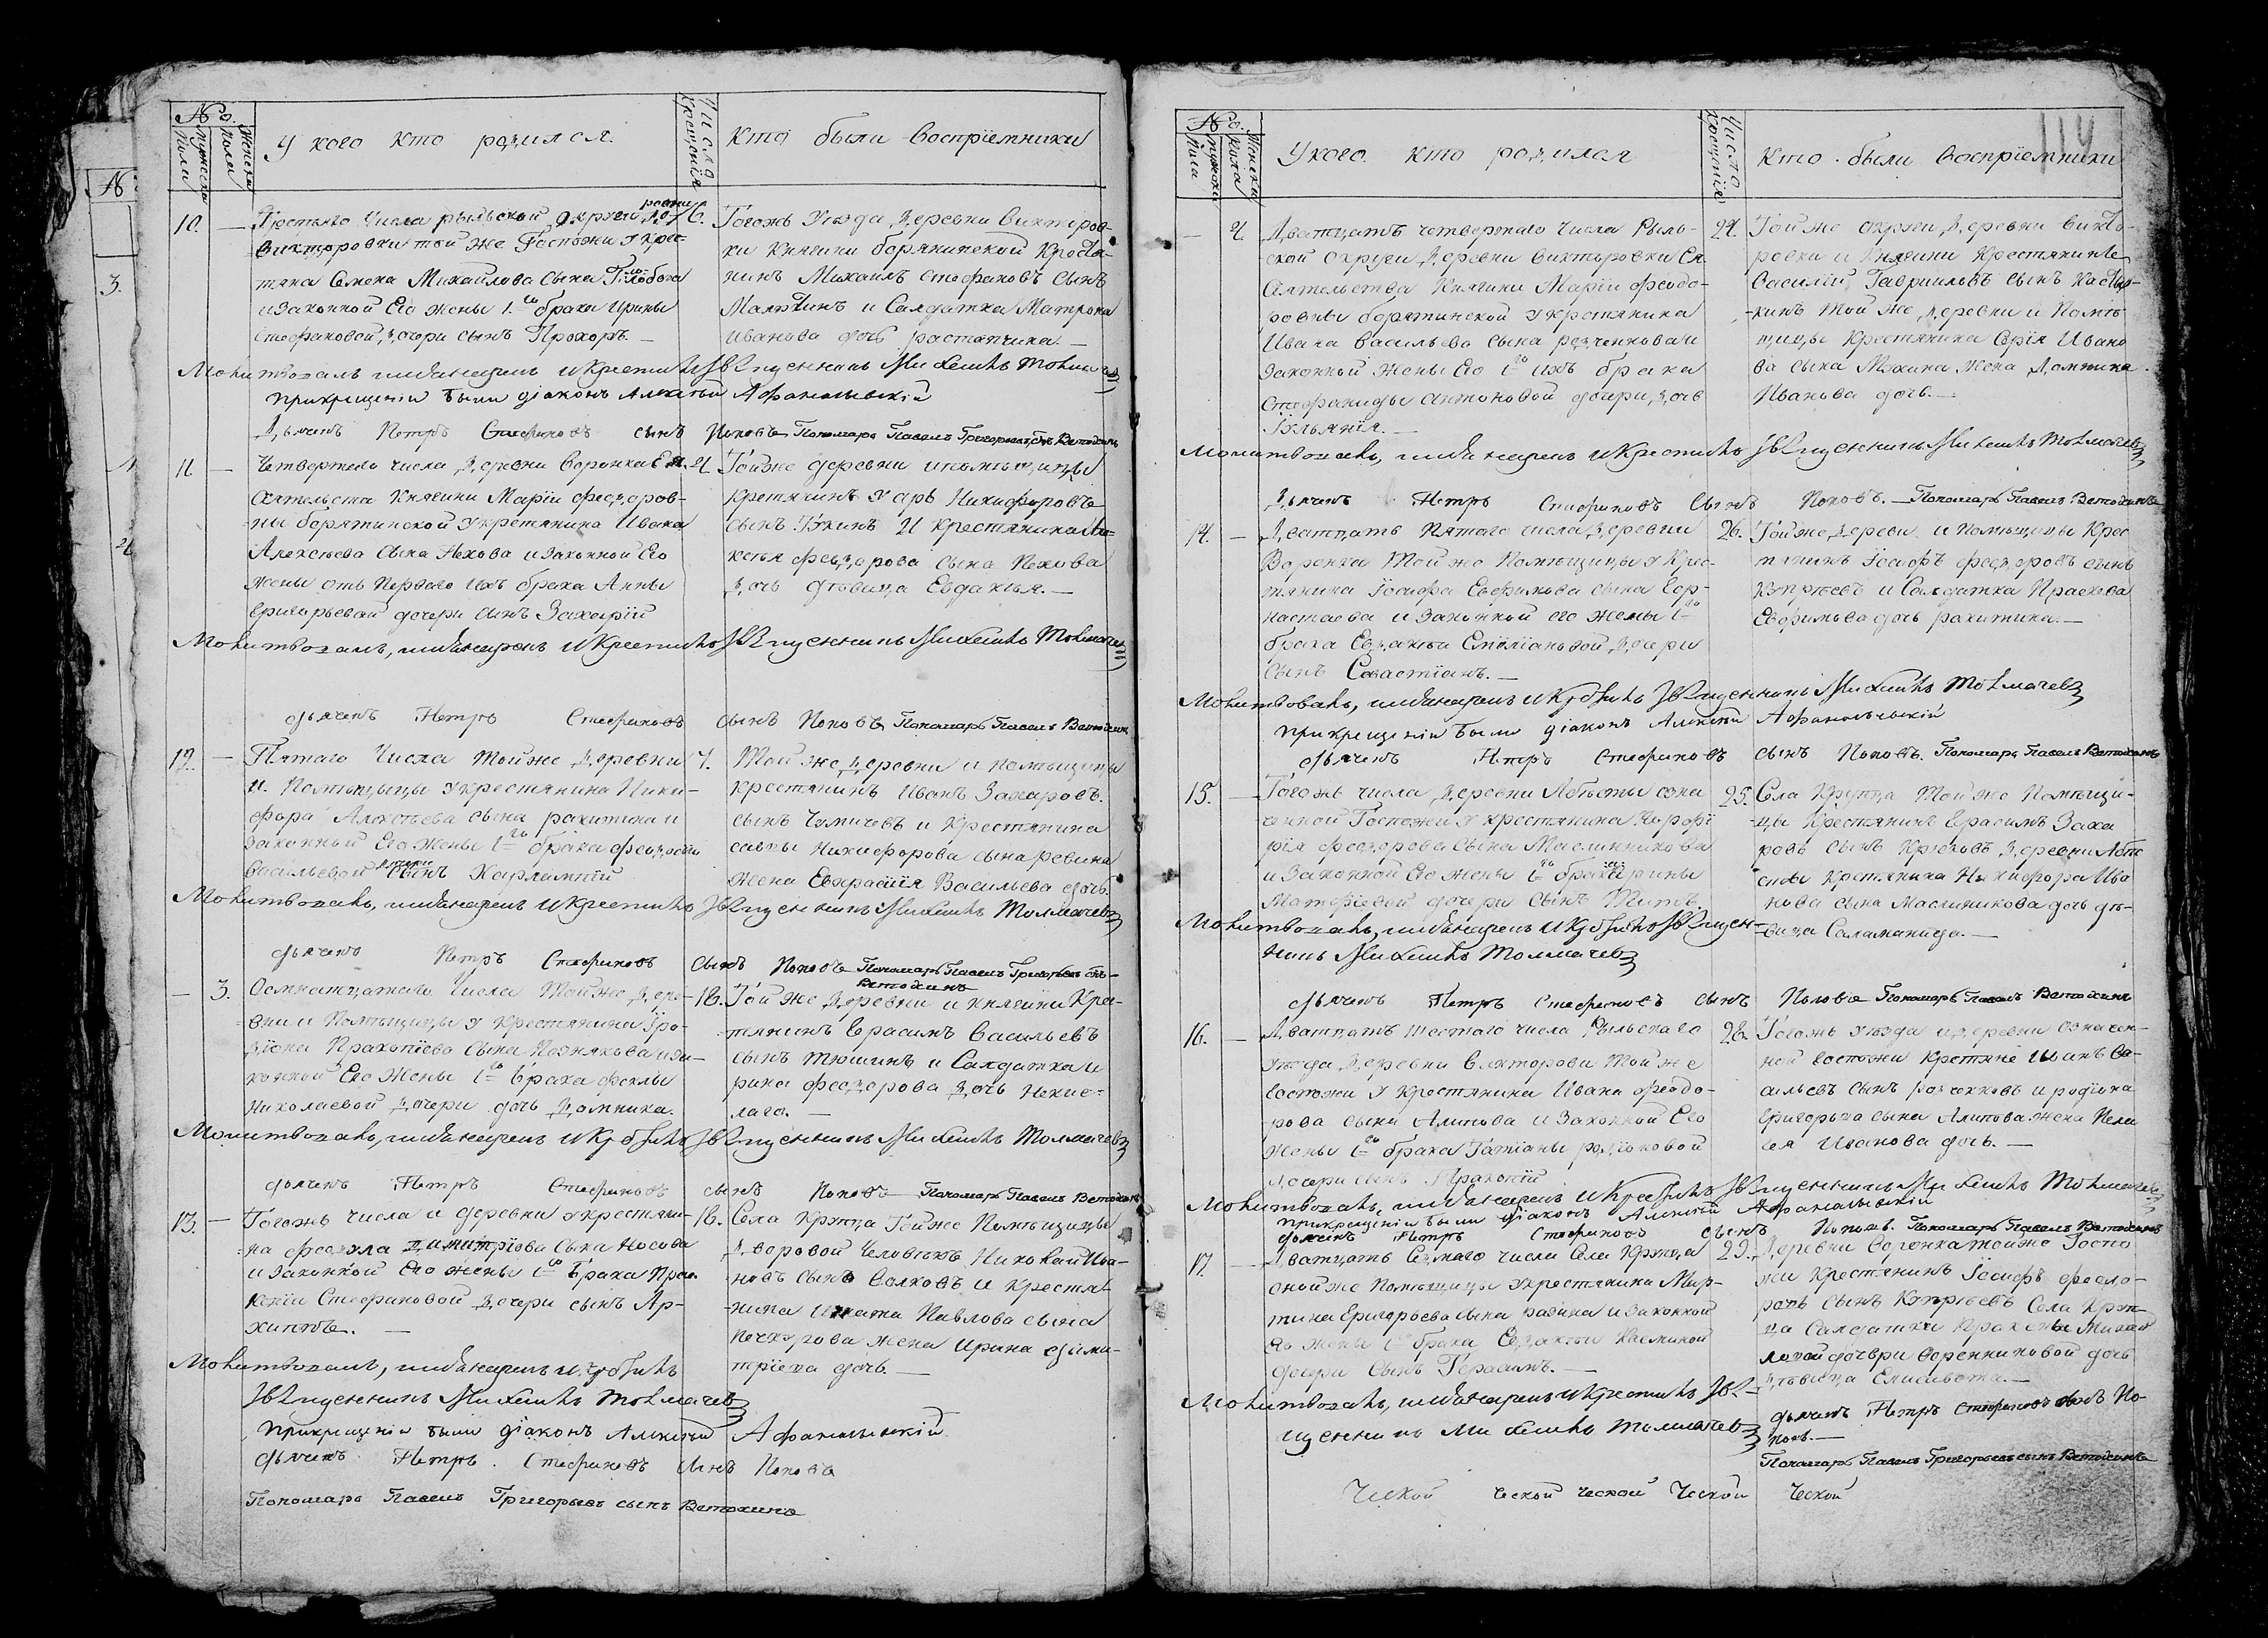 №
Мужеска полу
Женска полу
У кого кто родился.
Числа крещенія
Кто были восприемники
10. — Третьяго числа рыльской округи дерев- 6.
Викторовки той же Госпожи у крес-
тяна Семена Михаилова сына
и законной Его жены 1.го брака Ирины
Стефановой дочери сынъ Прохоръ. —
Тогожъ Уезда деревни Викторов-
ки Княгини борятинской Крестя-
нинъ Михаилъ Стефановъ сынъ
и Салдатка Матрона
Иванова дочь растатчика. —
Молитвовалъ, имя нарекъ и крестилъ Священникъ Михаилъ Толмачевъ
прикрещеніи были діаконъ Алексей Афанасьевскій
Дьячекъ Петръ Стефановъ сынъ Поповъ Пономарь Павелъ Григорьевъ сынъ Ветохинъ
11 — Четвертаго числа деревни Воронка Ея 4.
Сиятельства Княгини Маріи Феодоров-
ны борятинской у крестянина Ивана
Алексеева сына Пехова и законной Его
жены отъ перваго ихъ брака Анны
Григорьевой дочери сынъ Захарій
Тойже деревни и помещицы
Крестянинъ Никифоровъ
сынъ и крестянина Але-
ксея Феодорова сына Пехова
дочь девица Евдакья. —
Молитвовалъ, имя нарекъ и крестилъ Священникъ Михаилъ Толмачевъ
дьячекъ Петръ Стефановъ сынъ Поповъ Пономарь Павелъ Ветохинъ
12. — Пятаго числа тойже деревни 7.
и Помещицы у крестянина Ники-
фора Алексеева сына ракитина и
законной Его жены 1го брака Феодоры
Васильевой дочери сынъ Харлампій
Той же деревни и помещицы
крестянинъ Иванъ Захаровъ
сынъ Чумичевъ и Крестянина
савы Никифорова сына ревина
жена Евфрасиія Васильева дочь.
Молитвовалъ, имя нарекъ и крестилъ Священникъ Михаилъ Толмачевъ
дьячекъ Петръ Стефановъ сынъ Поповъ Пономарь Павелъ Григорьевъ сынъ
Ветохинъ
— 3. Осмнатцатаго числа Тойже дере- 18.
вни и Помещицы у крестянина Іро-
діона Пракопіева сына Познякова и за-
конной Его жены 1го брака Феклы
Николаевой дочери дочь Домника.
Той же деревни и княгини Кре-
тянинъ Герасимъ Васильевъ
сынъ тюшинъ и Салдатка И
рина Феодорова дочь Некис-
лаго. —
Молитвовалъ, имя нарекъ и крестилъ Священникъ Михаилъ Толмачевъ
дьячекъ Петръ Стефановъ сынъ Поповъ Пономарь Павелъ Ветохинъ
13. — Тогожъ числа и деревни у крестяни- 18.
на Феодула Димитріова сына Носова
и законной Его жены 1го брака
Стефановой дочери сынъ Ар-
хиппъ. —
Села Крупца Тойже Помещицы
дворовой человекъ Николай Ива-
новъ сынъ Волковъ и крестя-
нина Игната Павлова сына
жена Ирина Дими-
тріева дочь. —
Молитвовалъ, имя нарекъ и крестилъ
Священникъ Михаилъ Толмачевъ
прикрещеніи были діаконъ Алексей Афанасьевскій
дьячекъ Петръ Стефановъ сынъ Поповъ
Пономарь Павелъ Григорьевъ сынъ Ветохинъ
114
№
мужска пола
Женска пола
У кого кто родился
Число крещенія
Кто были восприемники
— 4. Дватцать четвертаго числа Рыль- 24.
ской округи деревни Викторовки Ея
Сиятельства Княгини Маріи Феодо-
ровны борятинской у крестянина
Ивана Васильева сына радченкова и
законной жены Его 1го ихъ брака
Стефаниды Антоновой дочери дочь
Іульянія. —
Той же округи деревни Викто-
ровки и Княгини Крестянинъ
Василій Гаврииловъ сынъ
той же деревни и Поме-
щицы Крестянина Сергія Ивано
ва сына жена Домника
Иванова дочь. —
Молитвовалъ, имя нарекъ и крестилъ Священникъ Михаилъ Толмачевъ
Дьячекъ Петръ Стефановъ Сынъ Поповъ. — Пономарь Павелъ Ветохинъ
14. — Дватцать пятаго числа деревни 26.
Воронка Той же Помещицы у Крес-
тянина Іосифа Евфимова сына
и законной его жены 1го
брака Евдакіи Емиліановой дочери
сынъ Севастіанъ. —
Тойже дереви и Помещицы Крес
тянинъ Іосифъ Феодоровъ сынъ
Купреевъ и Салдатка Праскова
Евфимова дочь ракитина. —
Молитвовалъ, имя нарекъ и крестилъ Священникъ Михаилъ Толмачевъ
прикрещеніи были діаконъ Алексей Афанасьевскій
дьячекъ Петръ Стефановъ сынъ Поповъ. Пономарь Павелъ Ветохинъ
15. — Тогожъ числа деревни озна 25.
ченной Госпожи у крестянина
Феодорова сына Маслинникова
и законной Его жены 1го брака Ирины
Матфіевой дочери сынъ Титъ.
Села Крупца Той же Помещи-
цы Крестянинъ Герасимъ Заха
ровъ сынъ Крюковъ деревни
Крестянина Никифора Ива
нова сына Маслиникова дочь де-
вица Саламанида. —
Молитвовалъ, имя нарекъ и крестилъ Священ-
никъ Михаилъ Толмачевъ
дьячекъ Петръ Стефановъ сынъ Поповъ Пономарь Павелъ Ветохинъ
16. — Дватцать шестаго числа Рыльскаго 28.
уезда деревни Викторовки Той же
Госпожи у крестянина Ивана Феодо-
рова сына Алипова и законной Его
жены 1го брака Татіаны родіоновой
дочери сынъ Пракопій
Тогожъ уезда и деревни означен-
ной Госпожи Крестяне Иванъ Ва-
сильевъ сынъ радченковъ и родіона
Григорьева сына Алипова жена Пела
гея Иванова дочь. —
Молитвовалъ, имя нарекъ и крестилъ Священникъ Михаилъ Толмачевъ
прикрещеніи были діаконъ Алексей Афанасьевскій
дьячекъ Петръ Стефановъ сынъ Поповъ. Пономарь Павелъ Ветохинъ
17. — Дватцать седмаго числа Села Крупца 29.
оной же Помещицы у крестянина Мар-
тина Григорьева сына и законной
Его жены 1го брака Евдакіи
дочери сынъ Герасимъ. —
Деревни Воронка тойже Госпо
жи Крестянинъ Іосифъ Феодо-
ровъ сынъ Купреевъ Села Круп
ца Салдатки
дочери дочь
девица Елисавета. —
Молитвовалъ, имя нарекъ и крестилъ Свя-
щенникъ Михаилъ Толмачевъ
дьячекъ Петръ Стефановъ сынъ По-
повъ. —
Пономарь Павелъ Григорьевъ сынъ Ветохинъ
Ческой ческой ческой Ческой Ческой